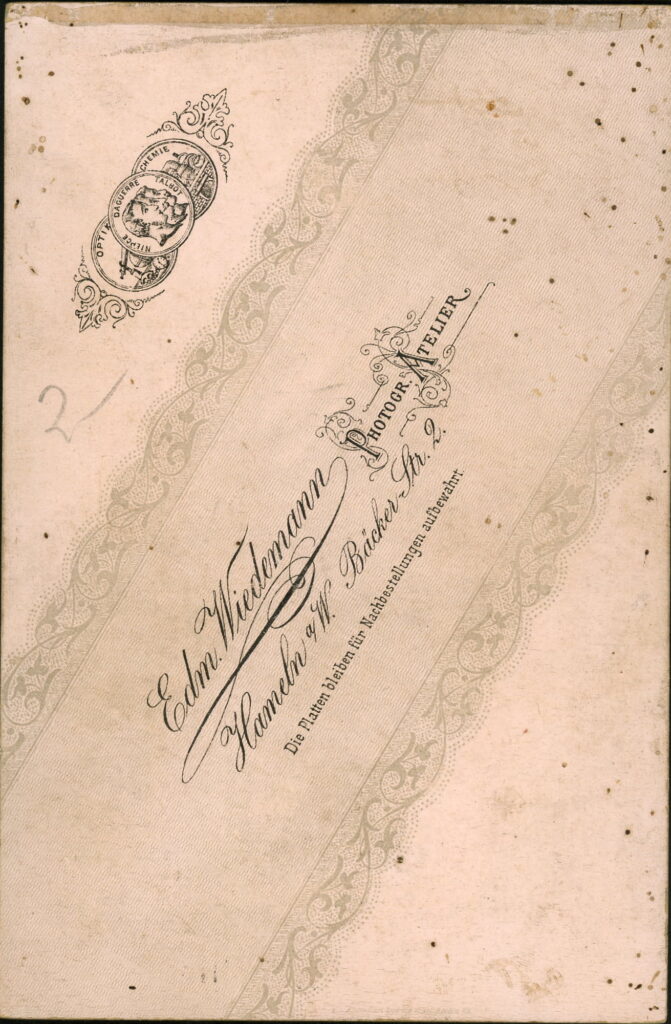 OPTIK
CHEMIE
NIEPCE DAGUERRE TALBOT
2
PHOTOGR. ATELIER
Edm. Wiedemann
Hameln a/W. Bäcker-Str. 2.
Die Platten bleiben für Nachbestellungen aufbewahrt.